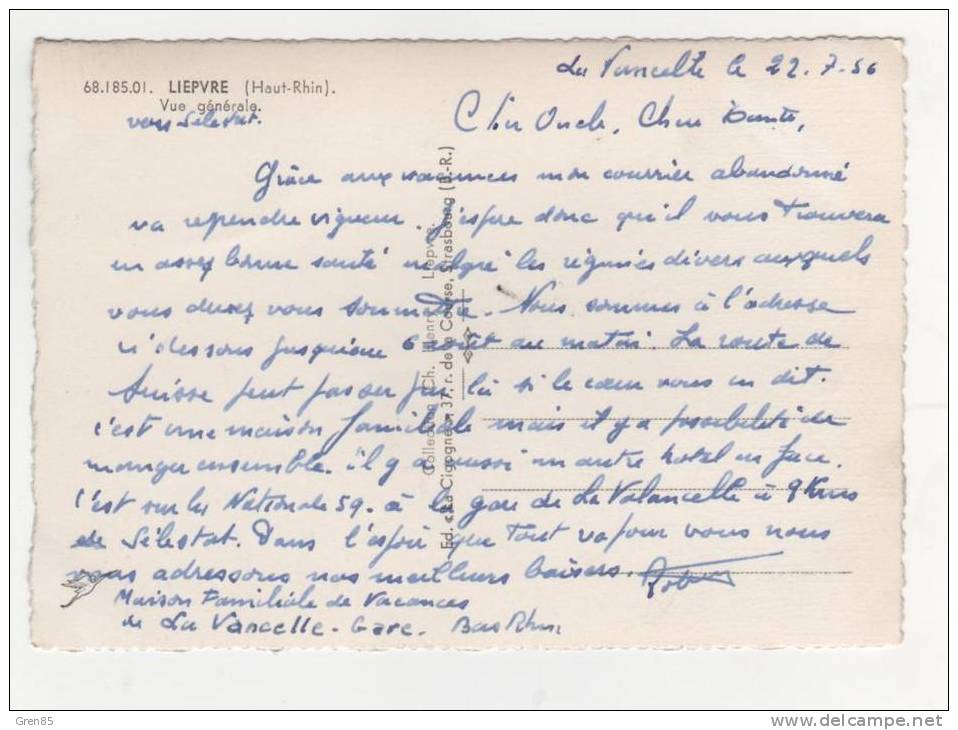 68.185.01. LIEPVRE (Haut-Rhin).
Vue générale.
vers Sélestat.
La Vancelle le 22.7.56
Cher Oncle, Chère Tante,
Grâce aux vacances mon courrier abandonné
va reprendre vigueur. J'espère donc qu'il vous trouvera
en assez bonne santé malgré les régimes divers auxquels
vous devez vous soumettre. Nous sommes à l'adresse
ci dessous jusqu'au 6 août au matin. La route de
Suisse peut passer par là si le cœur vous en dit.
C'est une maison familiale mais il y a possibilité de
manger ensemble. il y a aussi un autre hotel en face.
C'est sur la Nationale 59. à la gare de La Vancelle à 9 Kms
de Sélestat. Dans l'espoir que tout va pour vous nous
vous adressons nos meilleurs baisers.
Maison Familiale de Vacances
de La Vancelle-Gare. Bas Rhin
Collection Ch. Henry, Liepvre.
Ed. « La Cigogne » 37, r. de la Course, Strasbourg (B.-R.)
Gren85
www.delcampe.net